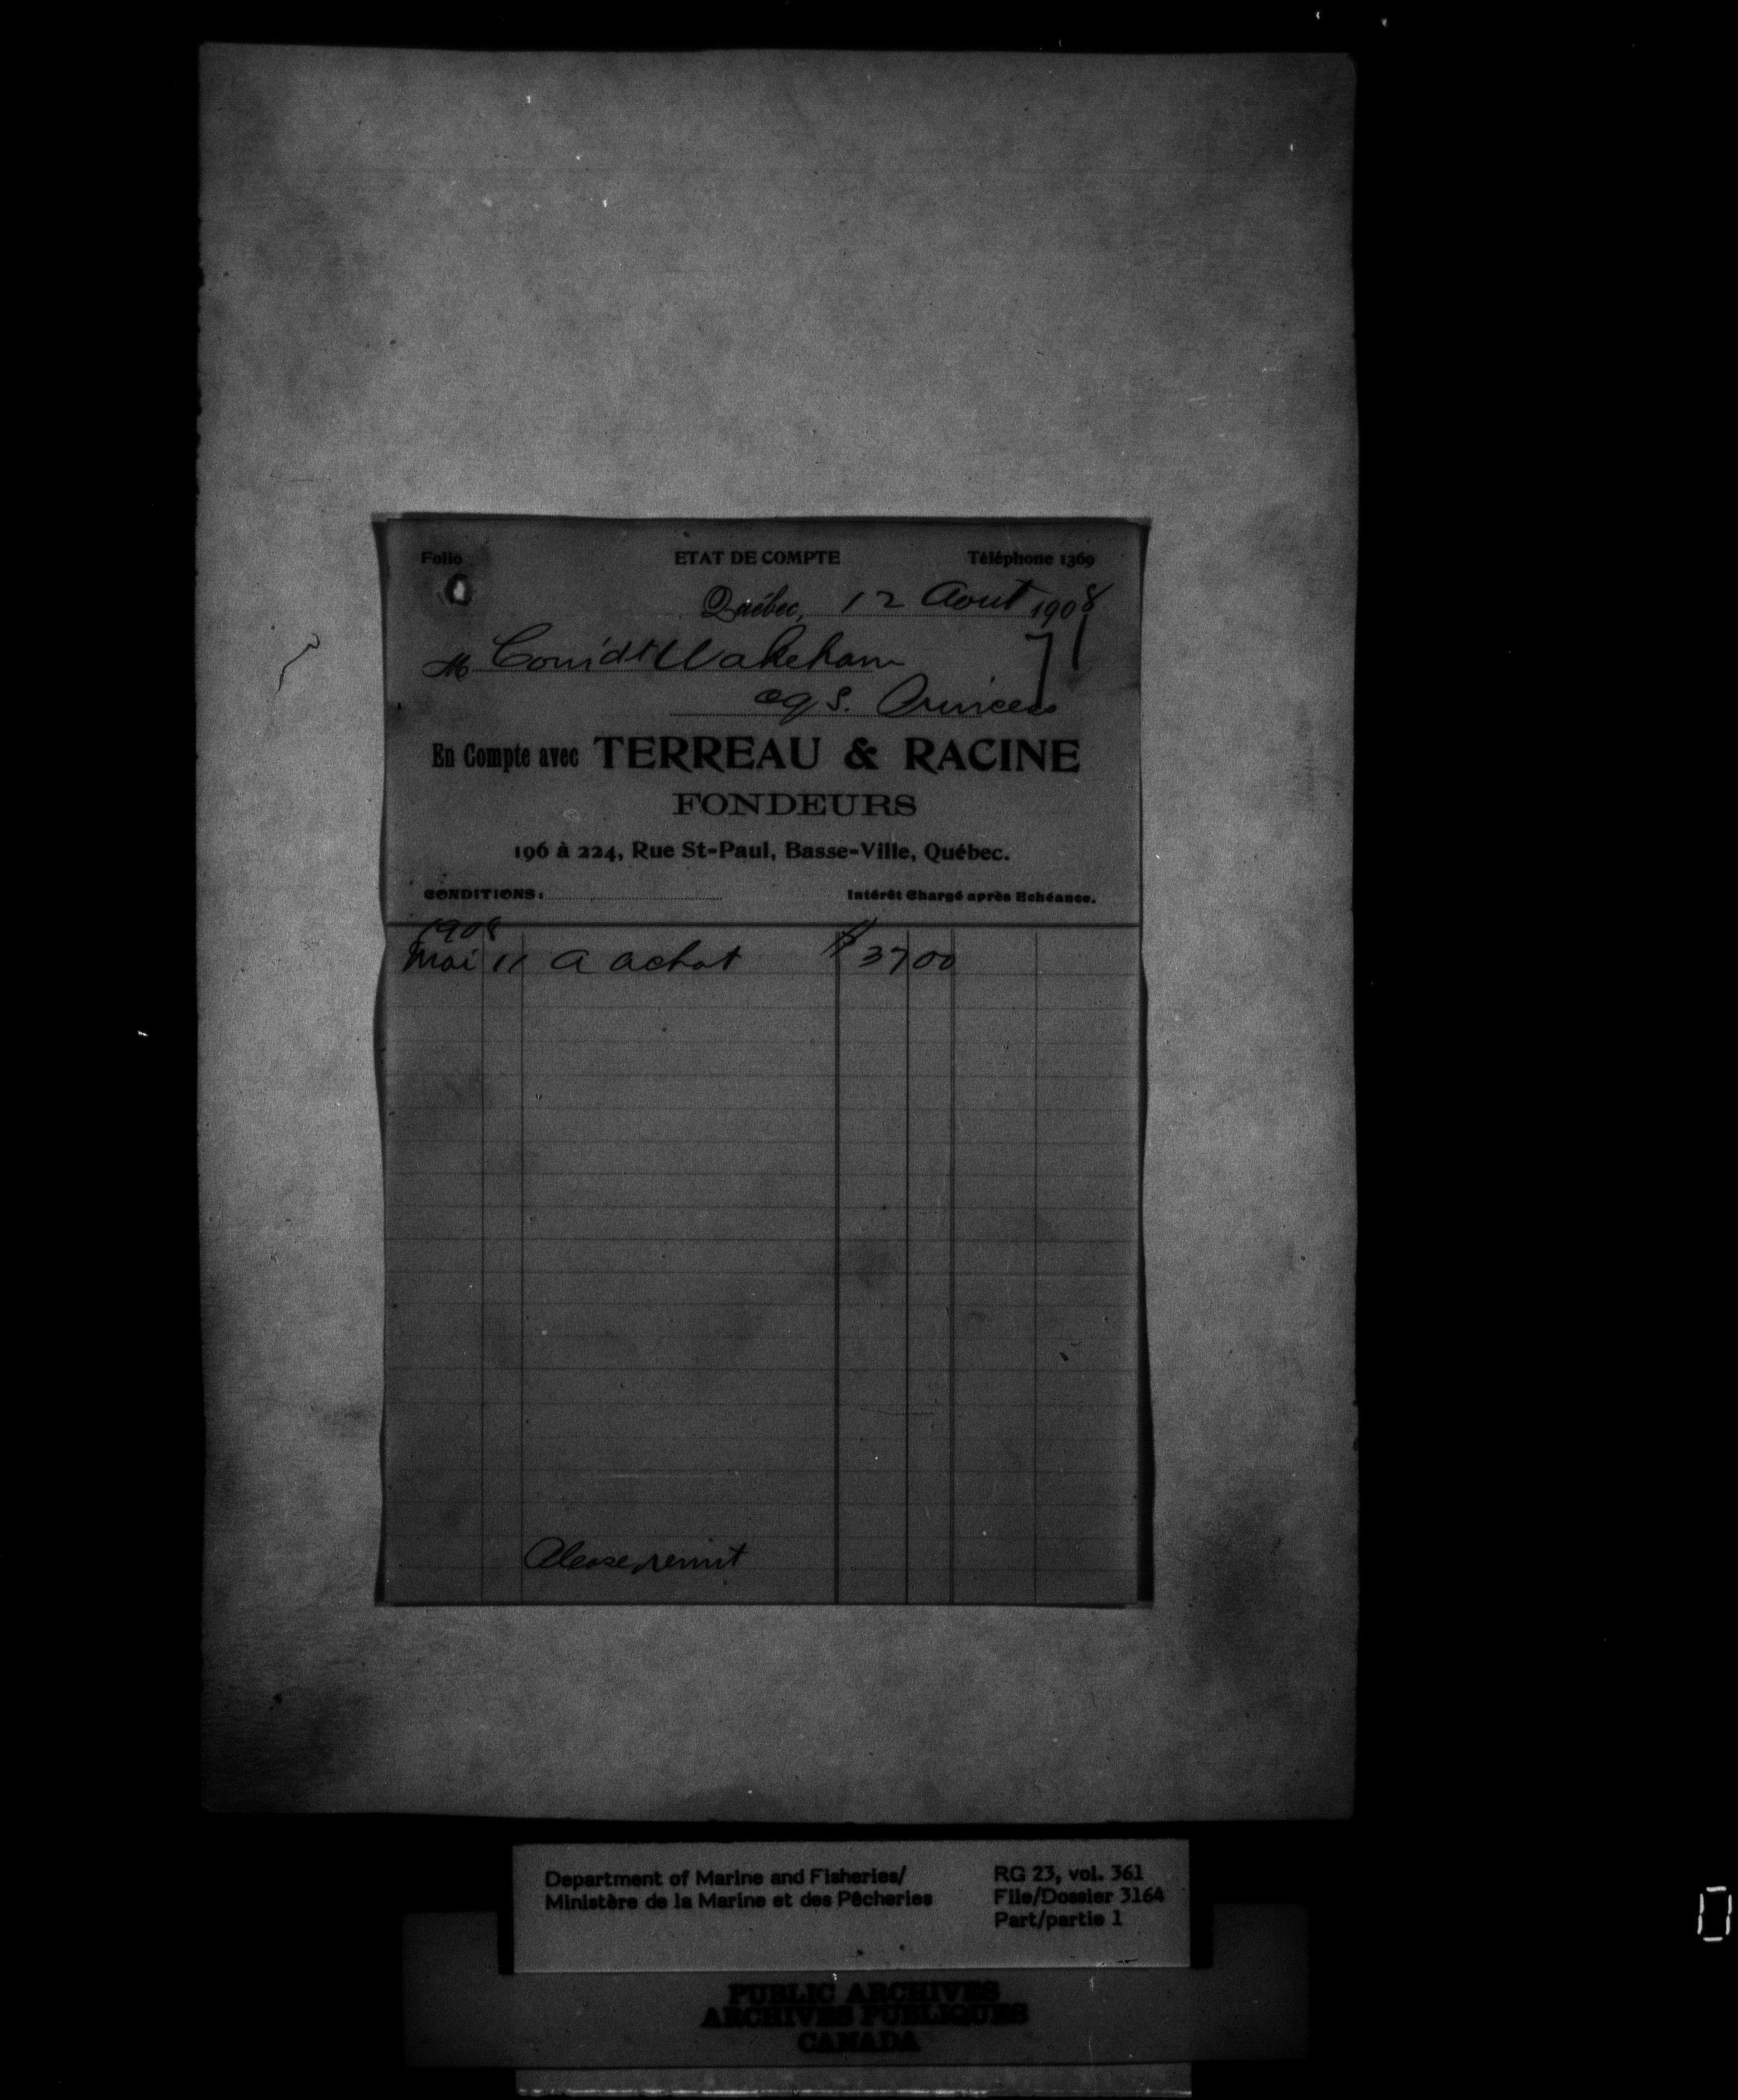 Folio ETAT DE COMPTE Téléphone 1369
Québec, 12 Aout 1908
M Com'dt Wakeham 71
CGS. Princess
En Compte avec TERREAU & RACINE
FONDEURS
196 à 224, Rue St-Paul, Basse-Ville, Québec.
CONDITIONS: Intérêt Chargé après Echéance.
1908
Mai 11 a achat $ 37 00
Please remit
Department of Marine and Fisheries/ RG 23, vol. 361
Ministère de la Marine et des Pêcheries File/Dossier 3164
Part/partie 1
PUBLIC ARCHIVES
ARCHIVES PUBLIQUES
CANADA